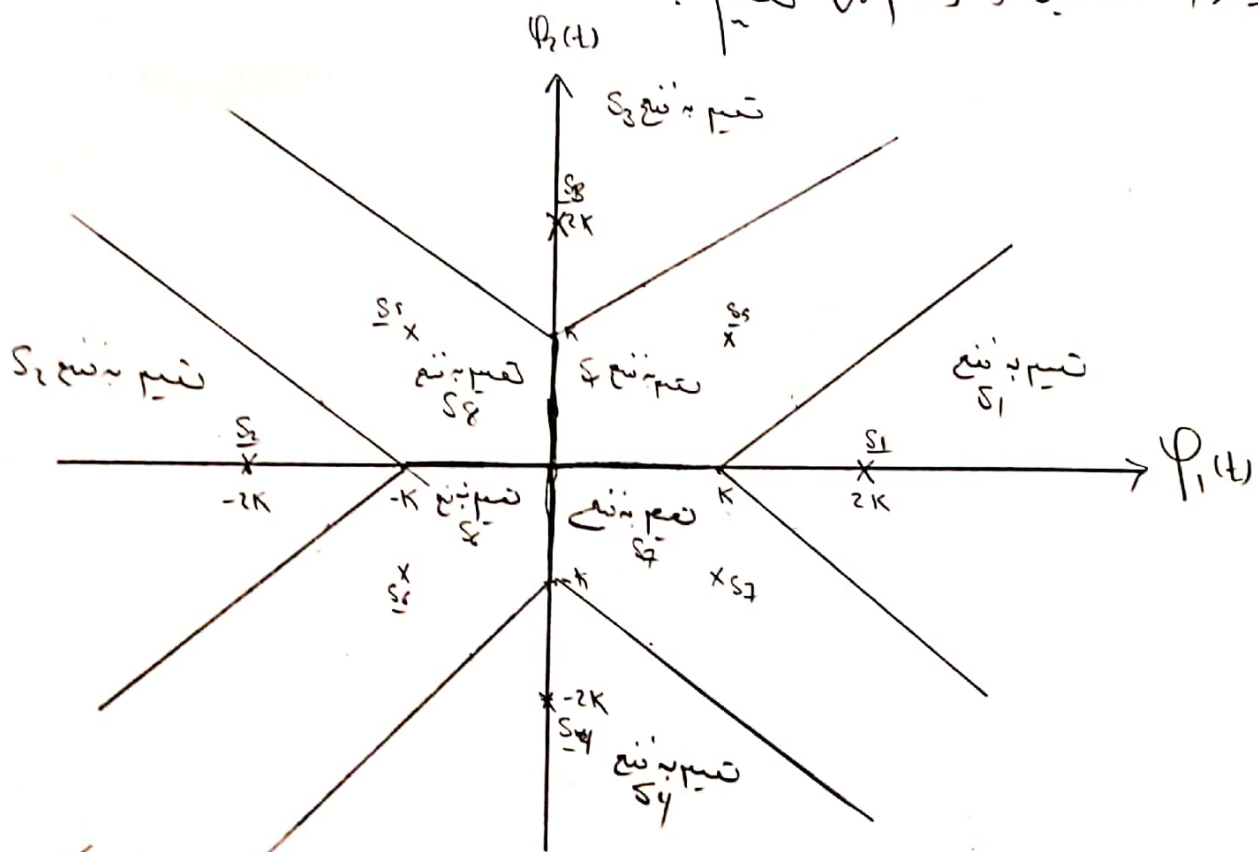 φ₂(t)
تصمیم به نفع S3
S3
2K
S5
K
تصمیم به نفع
S8
تصمیم به نفع
تصمیم به نفع
S1
تصمیم به نفع S2
S2
-2K
-K
K
S1
2K
φ₁(t)
تصمیم به نفع
S6
تصمیم به نفع
S7
S6
S7
-2K
تصمیم به نفع
S4